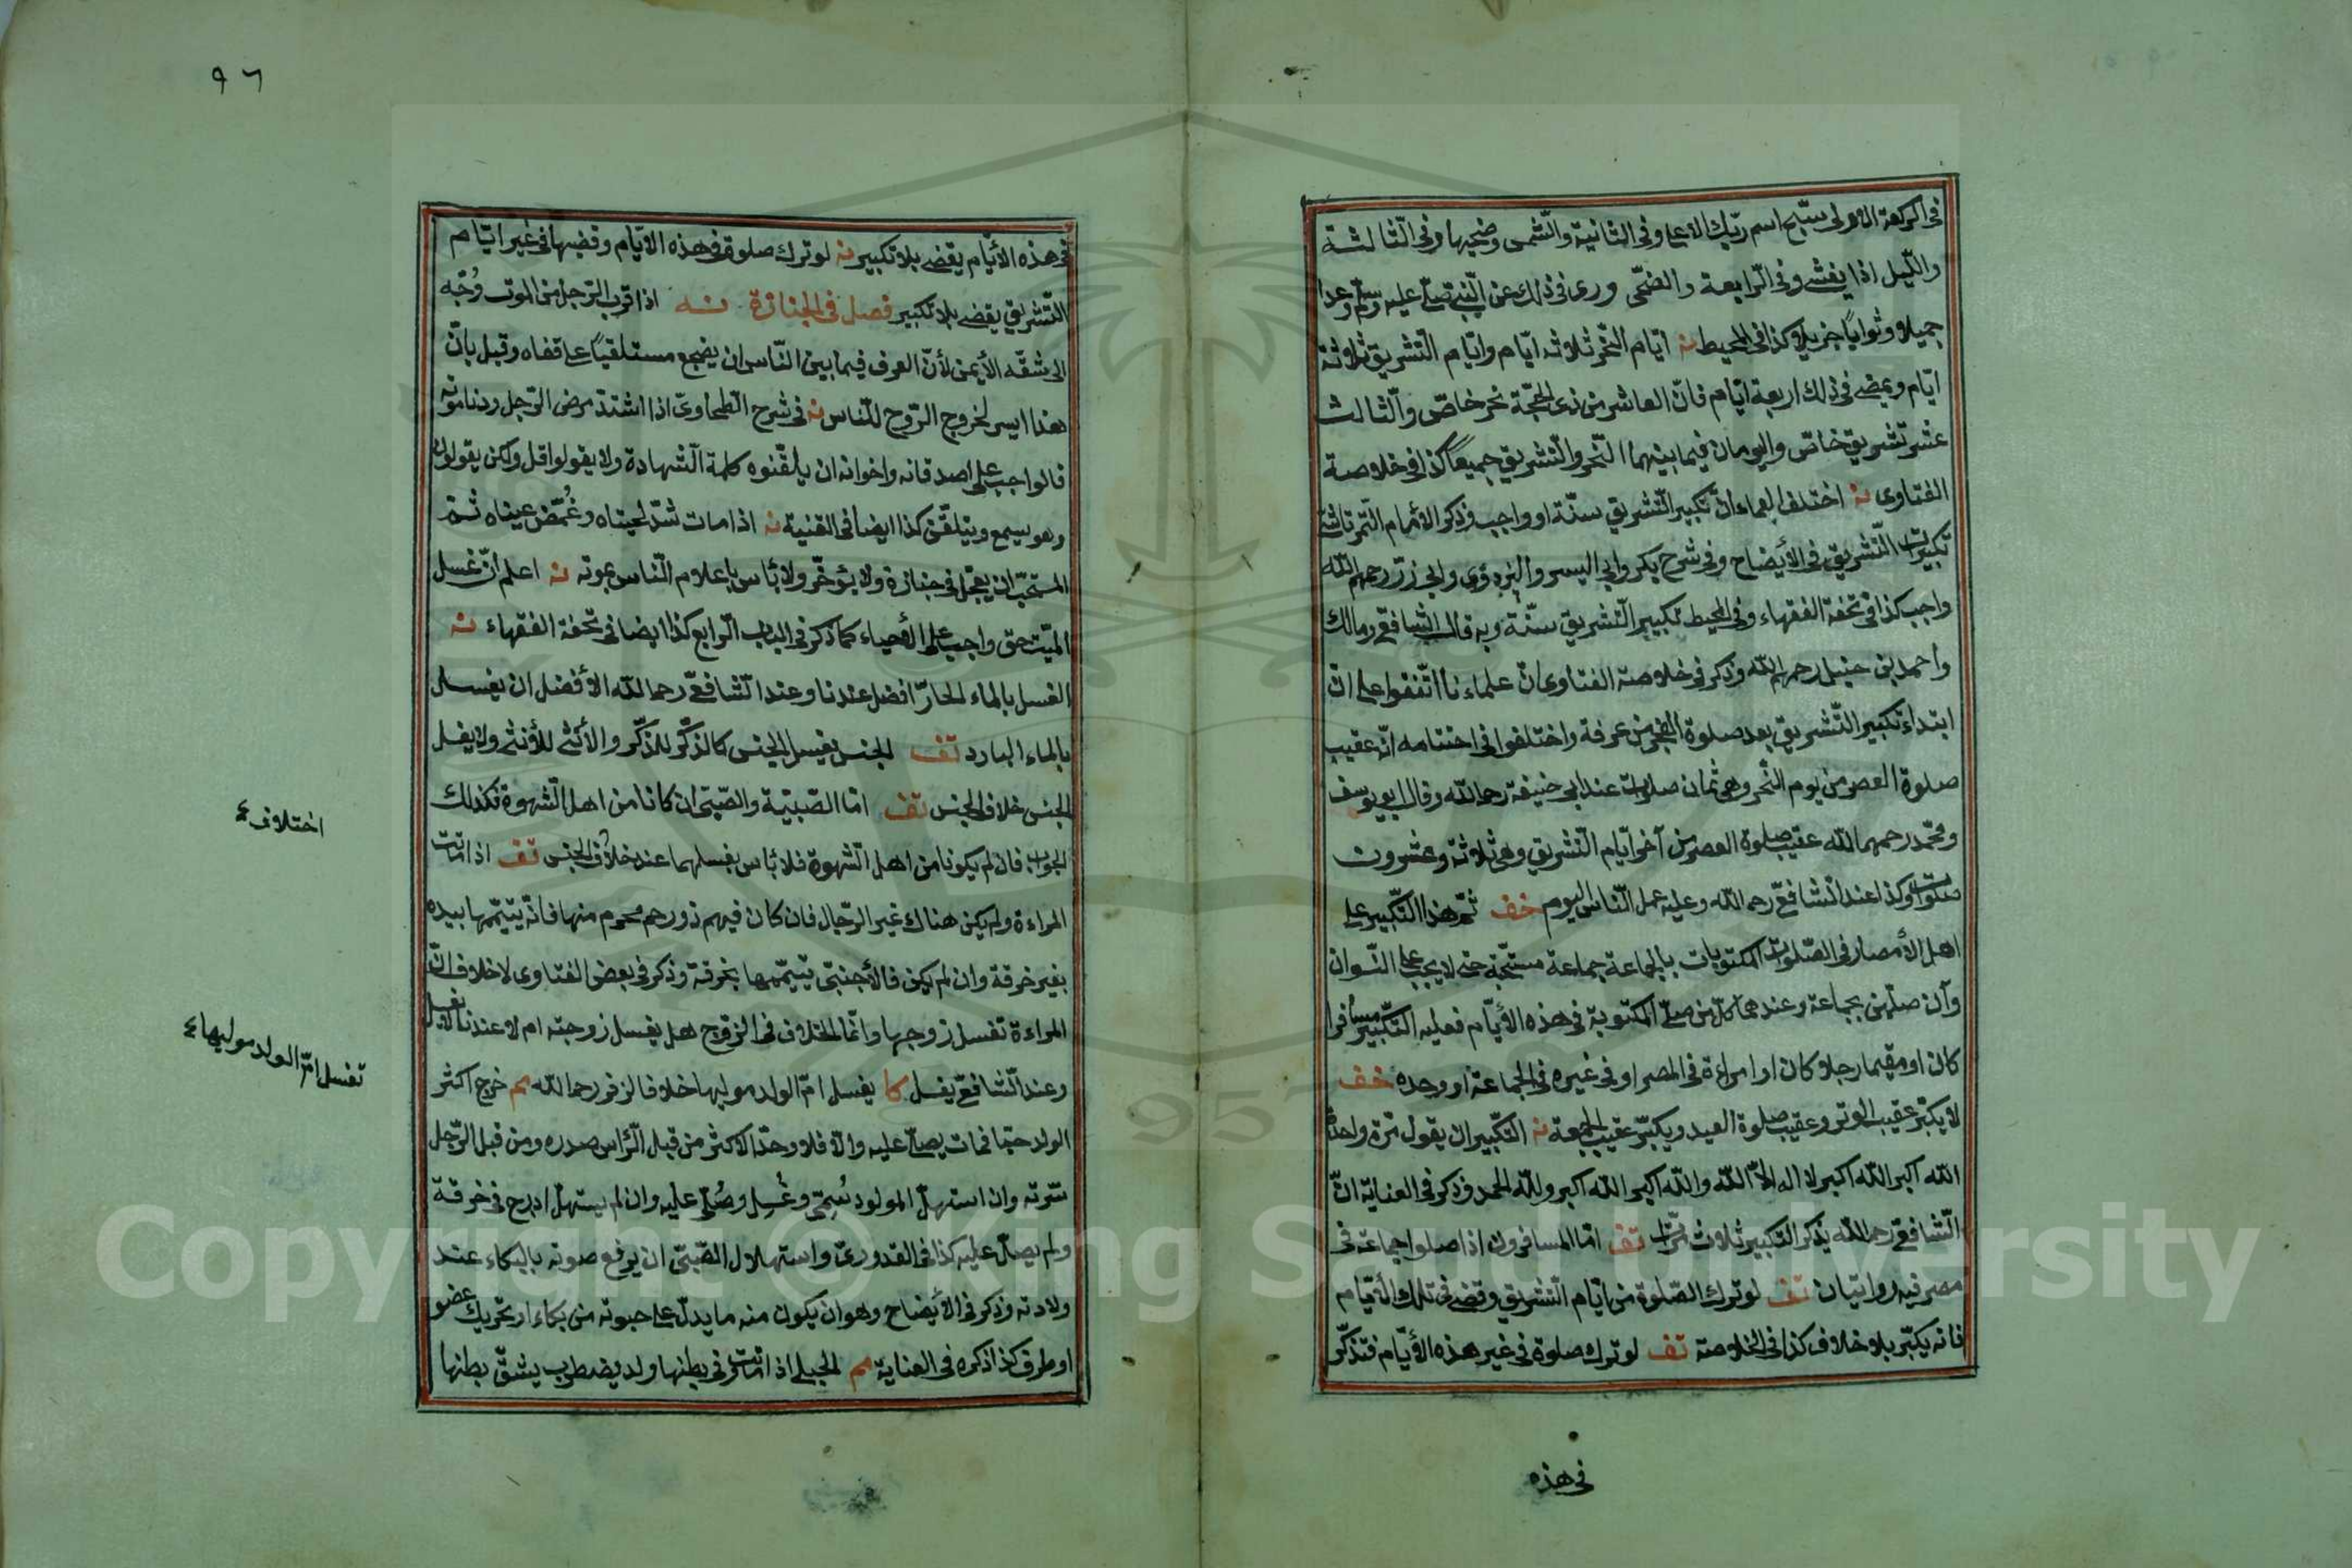 فى الركعة الاولى سبّح اسم ربّك الاعلى وفى الثانية والشّمس وضحيها وفى الثّالثة
واللّيل اذا يغشى وفى الرّابعة والضحّى وروى فى ذلك عن النّبىّ صلّى عليه وسلم وعدا
جميلا وثوابًا جزيلا كذا فى المحيط نه ايّام النّحر ثلاثة ايّام وايّام التّشريق ثلاثة
ايّام ويمضى فى ذلك اربعة ايّام فانّ العاشر من ذى الحجّة نحر خاصّ والثّالث
عشر تشريق خاصّ واليومان فيما بينهما النّحر والتّشريق جميعًا كذا فى خلاصة
الفتاوى نه اختلف العلماء انّ تكبير التّشريق سنّة او واجب وذكر الامام التّمرتاشى
تكبيرات التّشريق فى الأيضاح وفى شرح بكر وابى اليسر والبزدوى وابى زرّ رحمهم الله
واجب كذا فى تحفة الفقهاء وفى المحيط تكبير التّشريق سنّة وبه قال الشّافعّى ومالك
واحمد بن حنبل رحمهم الله وذكر فى خلاصة الفتاوى انّ علماءنا اتّفقوا على انّ
ابتداء تكبير التّشريق بعد صلوة الفجر من عرفة واختلفوا فى اختتامه انّه عقيب
صلوة العصر من يوم النّحر وهى ثمان صلوات عند ابى حنيفة رحمه الله وقال ابو يوسف
ومحمّد رحمهما الله عقيب صلوة العصر من آخر ايّام التّشريق وهى ثلاثة وعشرون
صلوات وكذا عند الشّافعّى رحمه الله وعليه عمل النّاس اليوم خف ثمّ هذا التّكبير على
اهل الأمصار فى الصّلوات المكتوبات بالجماعة جماعة مستحبّة حتى لا يجب على النّسوان
وان صلّين بجماعة وعندهما كلّ من صلّى المكتوبة فى هذه الأيّام فعليه التّكبير مسافرا
كان او مقيما رجلا كان او امراءة فى المصر او فى غيره فى الجماعة او وحده خف
لا يكبّر عقيب الوتر وعقيب صلوة العيد ويكبّر عقيب الجمعة نه التّكبير ان يقول مرّة واحدة
الله اكبر الله اكبر لا اله الاّ الله والله اكبر الله اكبر ولله الحمد وذكر فى العناية انّ
الشّافعّى رحمه الله يذكر التّكبير ثلاث مرّات تف امّا المسافرون اذا صلوا جماعة فى
مصر فيه روايتان تف لو ترك الصّلوة من ايّام التّشريق وقضى فى تلك الأيّام
فانه يكبّر بلا خلاف كذا فى الخلاصة تف لو ترك صلوة فى غير هذه الأيّام فتذكّر
فى هذه
٩٦
فى هذه الأيّام يقضى بلا تكبير نه لو ترك صلوة فى هذه الايّام وقضيها فى غير ايّام
التّشريق يقضى بلا تكبير فصل فى الجنازة نه اذا قرب الرّجل من الموت وُجّه
الى شقّه الأيمن لأنّ العرف فيما بين النّاس ان يضجع مستلقيًا على قفاه وقيل بانّ
هذا ايسر لخروج الرّوح للنّاس نه فى شرح الطّحاوىّ اذا اشتدّ مرض الرّجل ودنا موته
فالواجب على اصدقائه واخوانه ان يلقّنوه كلمة الشّهادة ولا يقولوا قل ولكن يقولون
وهو يسمع ويتلقّن كذا ايضا فى القنية نه اذا مات شدّ لحيتاه وغُمّض عيناه ثمّ
المستحبّ ان يعجّل فى جنازة ولا يؤخّر ولا بأس باعلام النّاس بموته نه اعلم انّ غسل
الميّت حق واجب على الأحياء كما ذكر فى الباب الرّابع كذا ايضا فى تحفة الفقهاء نه
الغسل بالماء الحارّ افضل عندنا وعند الشّافعّى رحمه الله الأفضل ان يغسل
بالماء البارد تف الجنس يغسل الجنس كالذّكر للذّكر والأنثى للأنثى ولا يغسل
الجنس خلاف الجنس تف امّا الصّبيّة والصّبىّ ان كانا من اهل الشّهوة فكذلك
الجواب فان لم يكونا من اهل الشّهوة فلا بأس بغسلهما عند خلاف الجنس تف اذا ماتت
المراءة ولم يكن هناك غير الرّجال فان كان فيهم ذو رحم محرم منها فانّه يتيمّمها بيده
بغير خرقة وان لم يكن فالأجنبىّ يتيمّمها بخرقة وذكر فى بعض الفتاوى لا خلاف انّ
المراءة تغسل زوجها وانّما الخلاف فى الزّوج هل يغسل زوجته ام لا عندنا لا يغسل
وعند الشّافعّى يغسل كا يغسل امّ الولد موليها خلافا لزفر رحمه الله مم خرج اكثر
الولد حيّا فمات يصلّى عليه والاّ فلا وحدّ الاكثر من قبل الرّأس صدره ومن قبل الرّجل
سّرته وان استهلّ المولود سُمّى وغُسل وصُلّى عليه وان لم يستهلّ ادرج فى خرقة
ولم يصلّ عليه كذا فى القدورىّ واستهلال الصّبىّ ان يرفع صوته بالبكاء عند
ولادته وذكر فى الأيضاح وهو ان يكون منه ما يدلّ على حيوته من بكاء او تحريك عضو
او طرف كذا ذكره فى العناية مم الحبلى اذا ماتت وفى بطنها ولد يضطرب يشقّ بطنها
اختلاف
تغسل امّ الولد موليها
Copyright © King Saud University